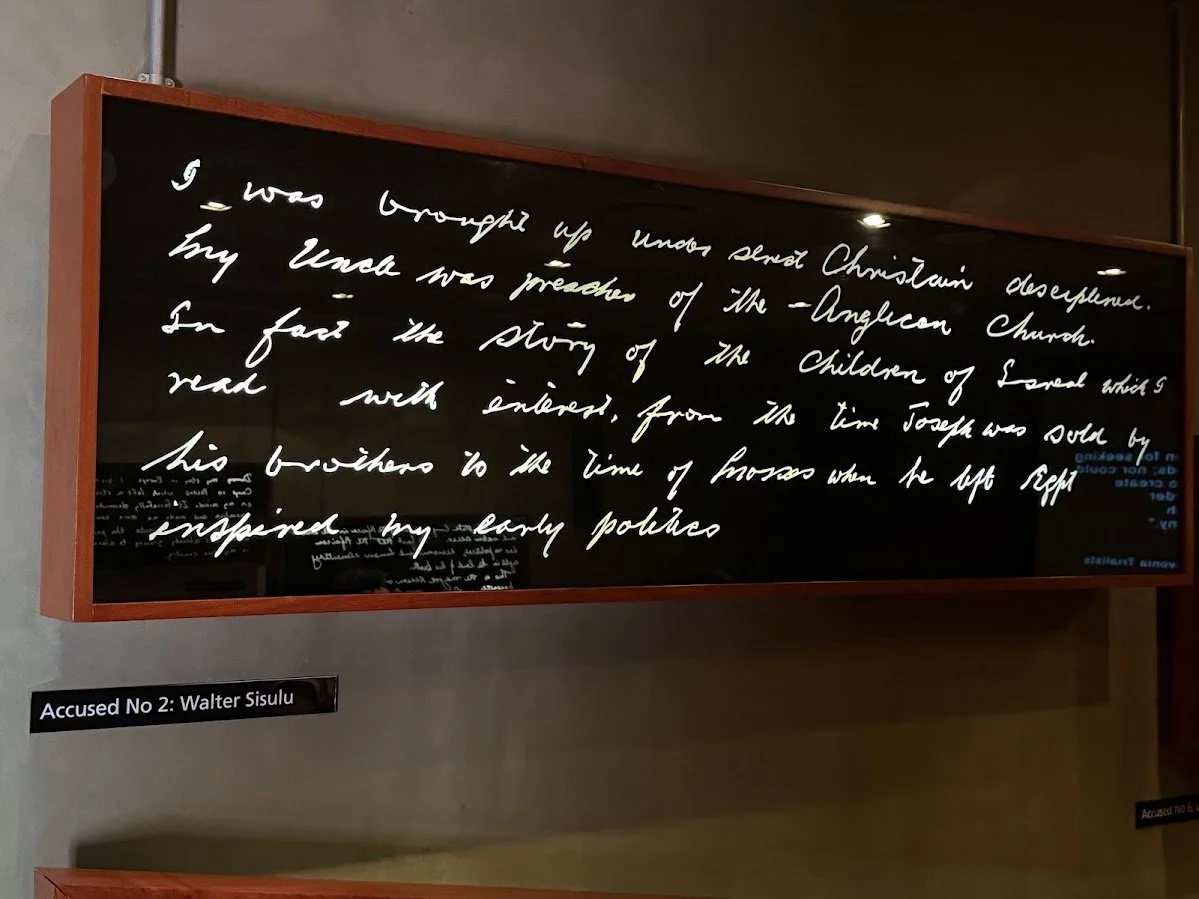 I was brought up under strict Christain desciplined.
My Uncle was preacher of the Anglican Church.
In fact the story of the Children of Isreal which I
read with interest, from the time Joseph was sold by
his brothers to the time of Mosses when he left Egpt
inspired my early politics
Accused No 2: Walter Sisulu
Accused No 8: